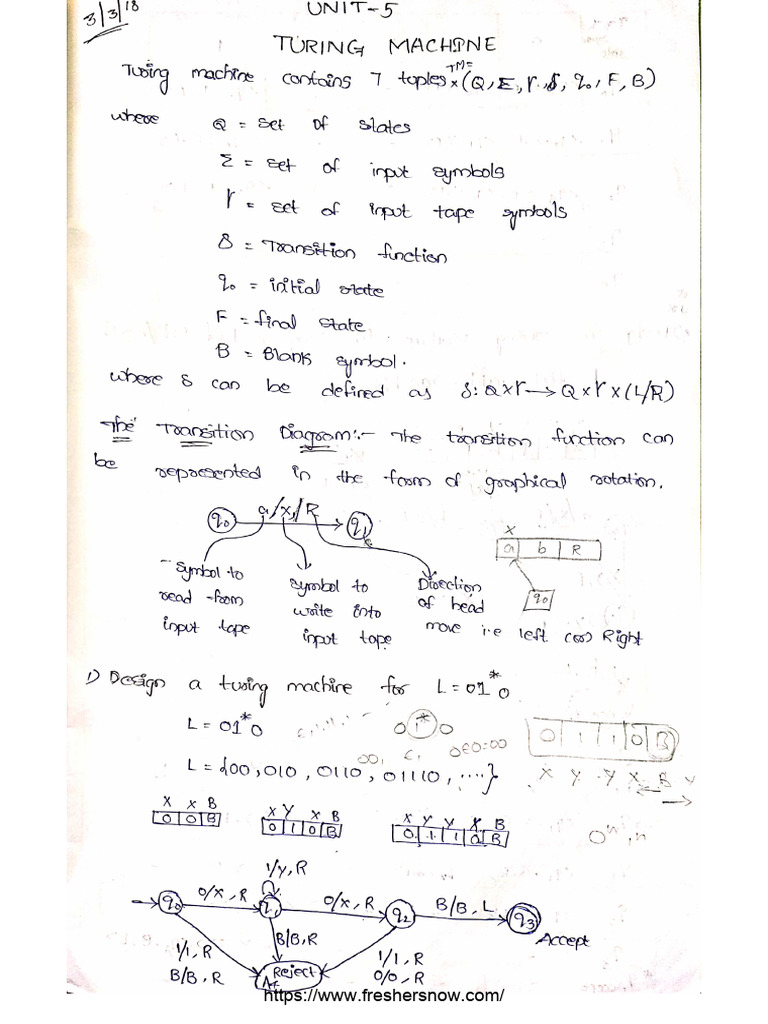 3/3/18
UNIT-5
TURING MACHINE
TM=
Turing machine contains 7 tuples (Q, Σ, Γ, δ, q0, F, B)
where Q = set of states
Σ = set of input symbols
Γ = set of input tape symbols
δ = Transition function
q0 = initial state
F = final state
B = Blank symbol.
where δ can be defined as δ: Q×Γ → Q×Γ×(L/R)
The Transition Diagram:- The transition function can
be represented in the form of graphical notation.
q0 a/x,/R q1
x
a b R
q0
Symbol to read from input tape
symbol to write into input tape
Direction of head move i.e left (or) Right
1) Design a turing machine for L = 01*0
L = 01*0 01*0
0 1 1 0 B
L = {00, 010, 0110, 01110, ....}
X Y Y X B
X X B
0 0 B
X Y X B
0 1 0 B
X Y Y X B
0 1 1 0 B
1/Y, R
q0 0/X, R q1 0/X, R q2 B/B, L q3
Accept
1/1, R
B/B, R
B/B, R
Reject
1/1, R
0/0, R
https://www.freshersnow.com/